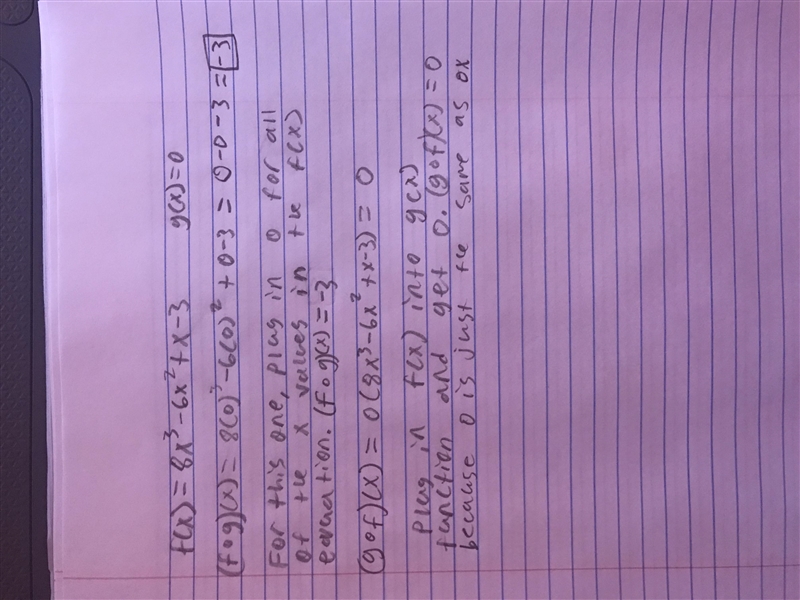 f(x) = 8x³-6x²+x-3 g(x)=0
(fog)(x) = 8(0)³-6(0)²+0-3 = 0-0-3 = -3
For this one, plug in 0 for all
of the x values in the f(x)
equation. (fog)(x) = -3
(gof)(x) = 0(8x³-6x²+x-3) = 0
Plug in f(x) into g(x)
function and get 0. (gof)(x) = 0
because 0 is just the same as 0x